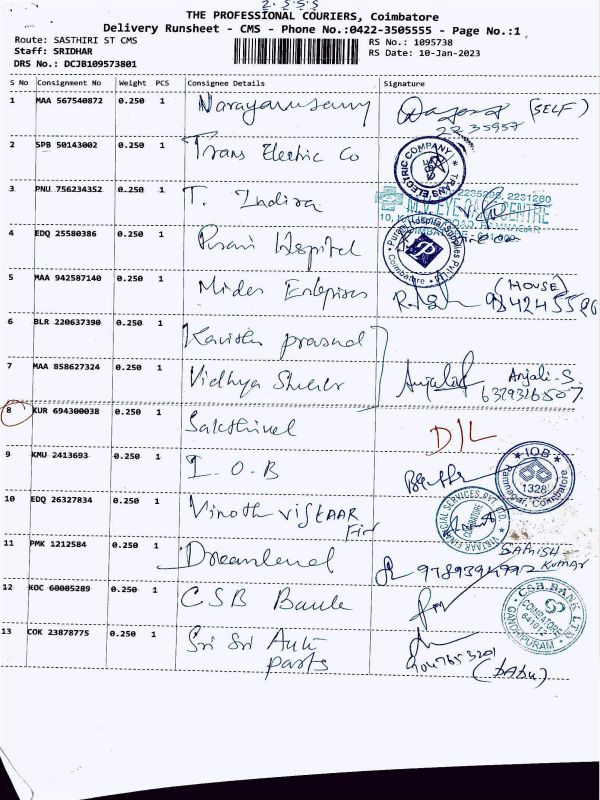 THE PROFESSIONAL COURIERS, Coimbatore
Delivery Runsheet - CMS - Phone No.:0422-3505555 - Page No.:1
Route: SASTHIRI ST CMS
RS No.: 1095738
Staff: SRIDHAR
RS Date: 10-Jan-2023
DRS No.: DCJB109573801
S No Consignment No Weight PCS Consignee Details Signature
1 MAA 567540872 0.250 1 Narayanasamy (SELF)
2235957
2 SPB 50143002 0.250 1 Trans Electric Co TRANS ELECTRIC COMPANY
3 PNU 756234352 0.250 1 T. Indira
2235298, 2231280
EYE CENTRE
4 EDQ 25580386 0.250 1 Purani Hospital Purani Hospital Supplies Pvt Ltd Coimbatore
5 MAA 942587140 0.250 1 (HOUSE)
6 BLR 220637390 0.250 1 Kavitha prasad
7 MAA 858627324 0.250 1 Vidhya Anjali.S
8 KUR 694300038 0.250 1 Sakthivel D/L
9 KMU 2413693 0.250 1 I.O.B IOB 1328 Ramnagar, Coimbatore
10 EDQ 26327834 0.250 1 Vinoth VISTAAR
Fin VISTAAR FINANCIAL SERVICES PVT. LTD. COIMBATORE
11 PMK 1212584 0.250 1 SATHISH
KUMAR
12 KOC 60085289 0.250 1 CSB Bank CSB BANK LTD COIMBATORE 641012 GANDHIPURAM
13 COK 23878775 0.250 1 Sri Sri Auto
parts 9047653201
(babu)